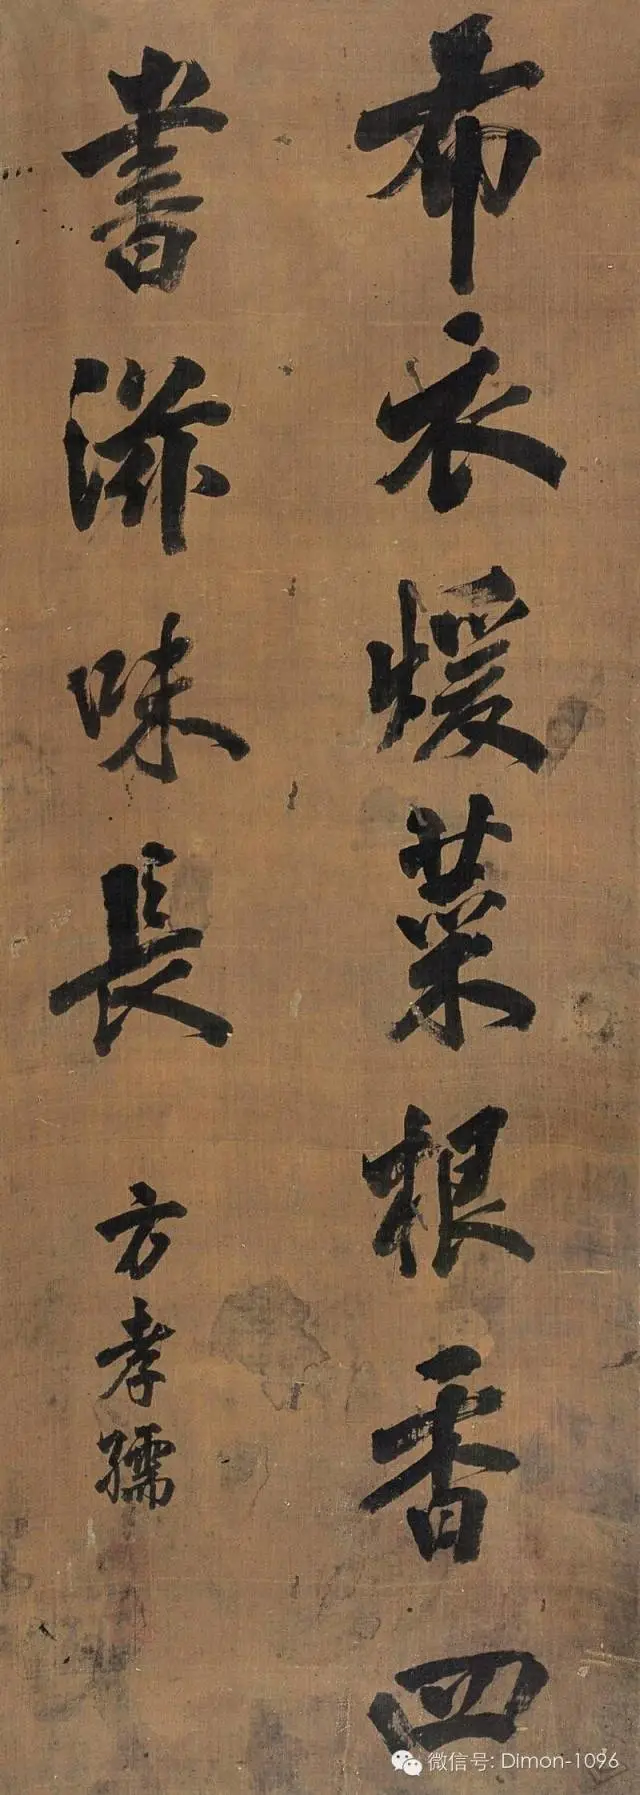 布衣煖菜根香四
書滋味長
方孝孺
微信号: Dimon-1096